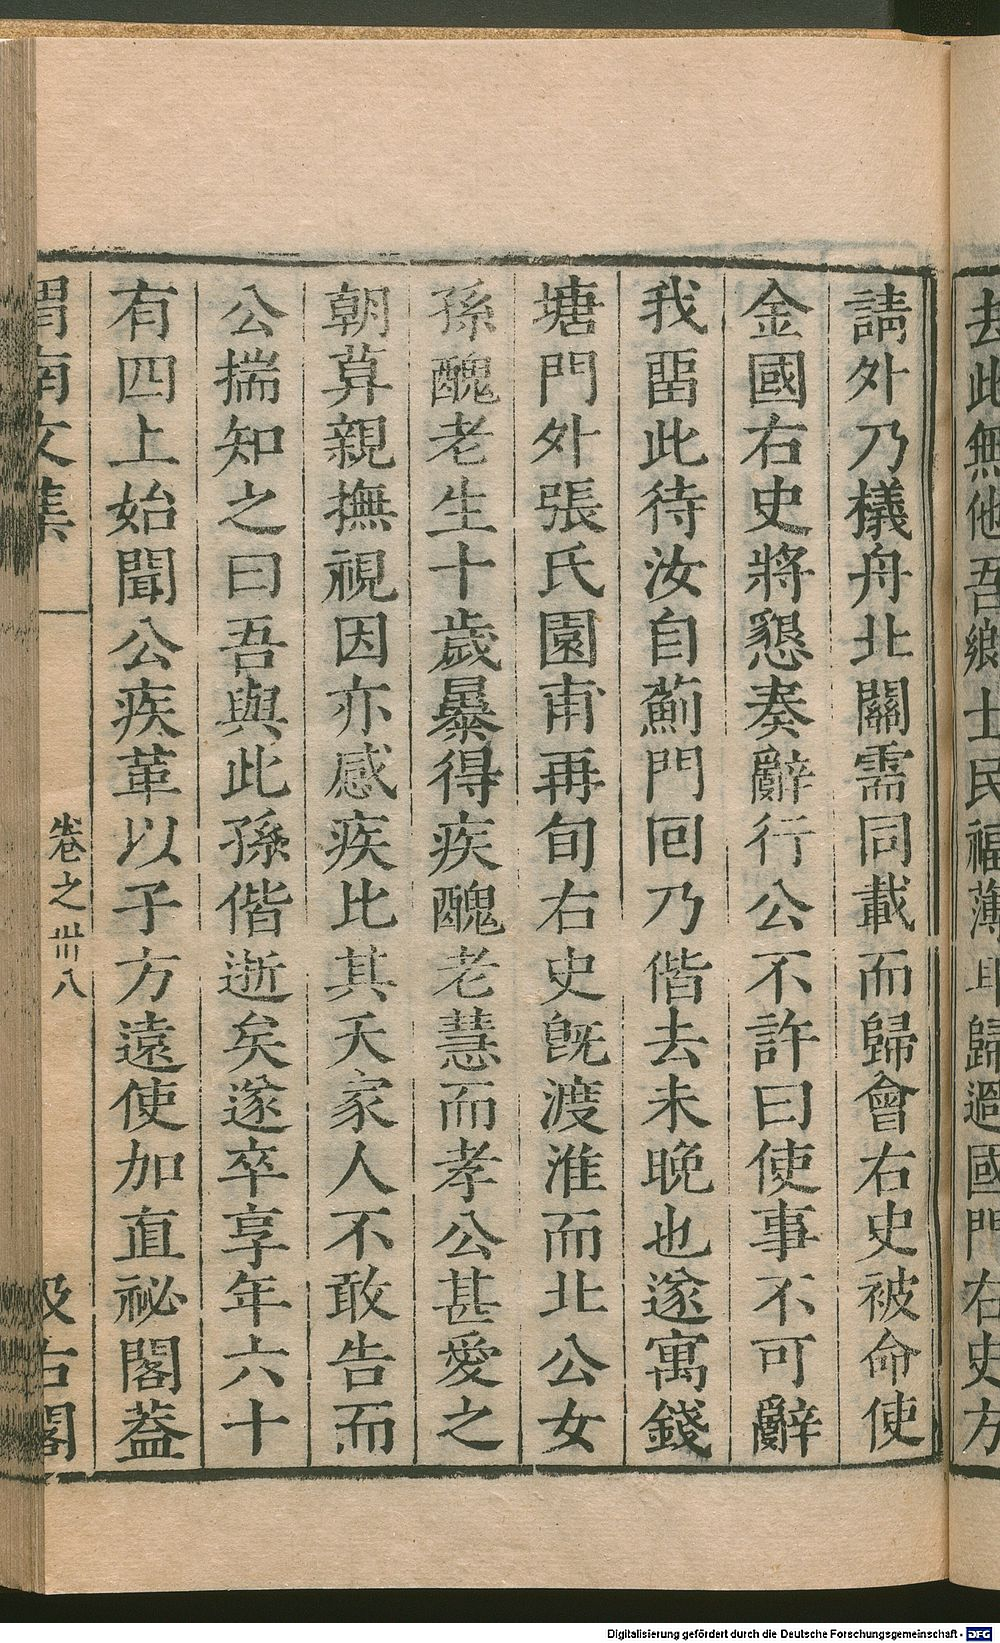 去此無他吾鄉士民福薄耳歸過國門右史方
請外乃檥舟北關需同載而歸會右史被命使
金國右史將懇奏辭行公不許曰使事不可辭
我畱此待汝自薊門囘乃偕去未晚也遂寓錢
塘門外張氏園甫再旬右史旣渡淮而北公女
孫醜老生十歲暴得疾醜老慧而孝公甚愛之
朝莫親撫視因亦感疾比其夭家人不敢告而
公揣知之曰吾與此孫偕逝矣遂卒享年六十
有四上始聞公疾革以子方遠使加直祕閣葢
渭南文集
卷之卅八
汲古閣
Digitalisierung gefördert durch die Deutsche Forschungsgemeinschaft - DFG